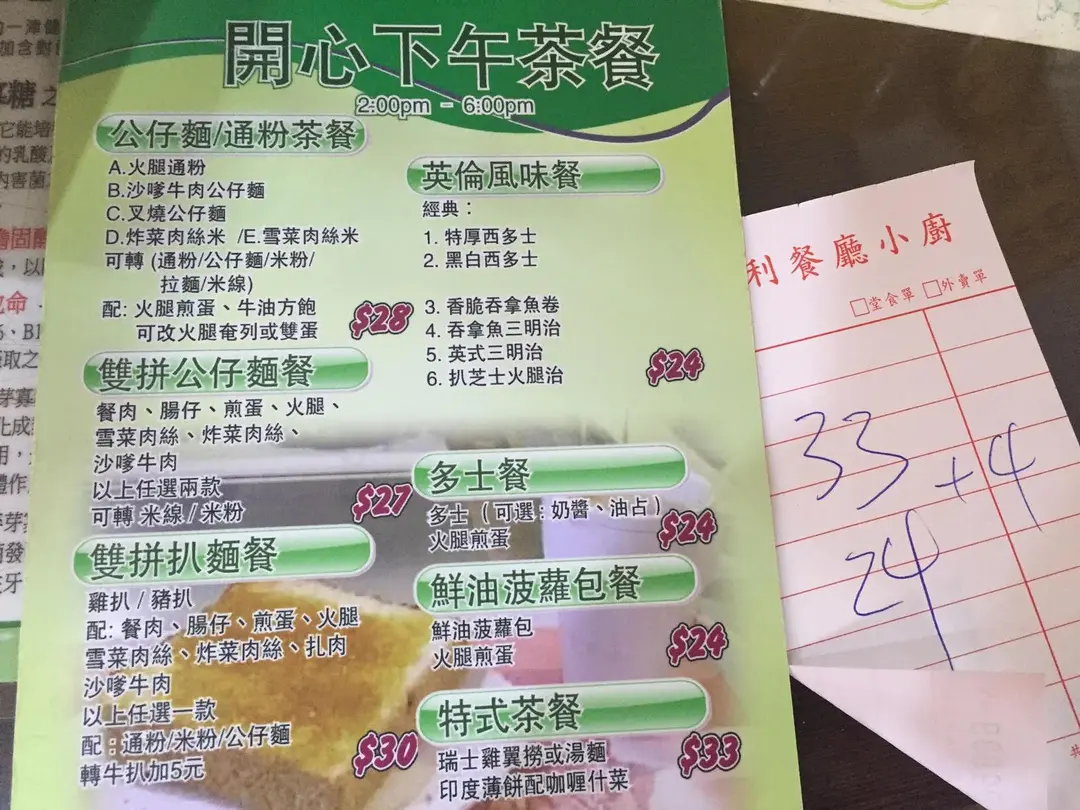 開心下午茶餐
2:00pm - 6:00pm
公仔麵/通粉茶餐
A.火腿通粉
B.沙嗲牛肉公仔麵
C.叉燒公仔麵
D.炸菜肉絲米 /E.雪菜肉絲米
可轉 (通粉/公仔麵/米粉/
拉麵/米線)
配: 火腿煎蛋、牛油方飽
可改火腿奄列或雙蛋
$28
雙拼公仔麵餐
餐肉、腸仔、煎蛋、火腿、
雪菜肉絲、炸菜肉絲、
沙嗲牛肉
以上任選兩款
可轉 米線 / 米粉
$27
雙拼扒麵餐
雞扒 / 豬扒
配: 餐肉、腸仔、煎蛋、火腿
雪菜肉絲、炸菜肉絲、扎肉
沙嗲牛肉
以上任選一款
配 : 通粉/米粉/公仔麵
轉牛扒加5元
$30
英倫風味餐
經典：
1. 特厚西多士
2. 黑白西多士
3. 香脆吞拿魚卷
4. 吞拿魚三明治
5. 英式三明治
6. 扒芝士火腿治
$24
多士餐
多士 ( 可選 : 奶醬、油占 )
火腿煎蛋
$24
鮮油菠蘿包餐
鮮油菠蘿包
火腿煎蛋
$24
特式茶餐
瑞士雞翼撈或湯麵
印度薄餅配咖喱什菜
$33
利餐廳小廚
□堂食單 □外賣單
33
+4
24
糖之
它能培
的乳酸
內害菌